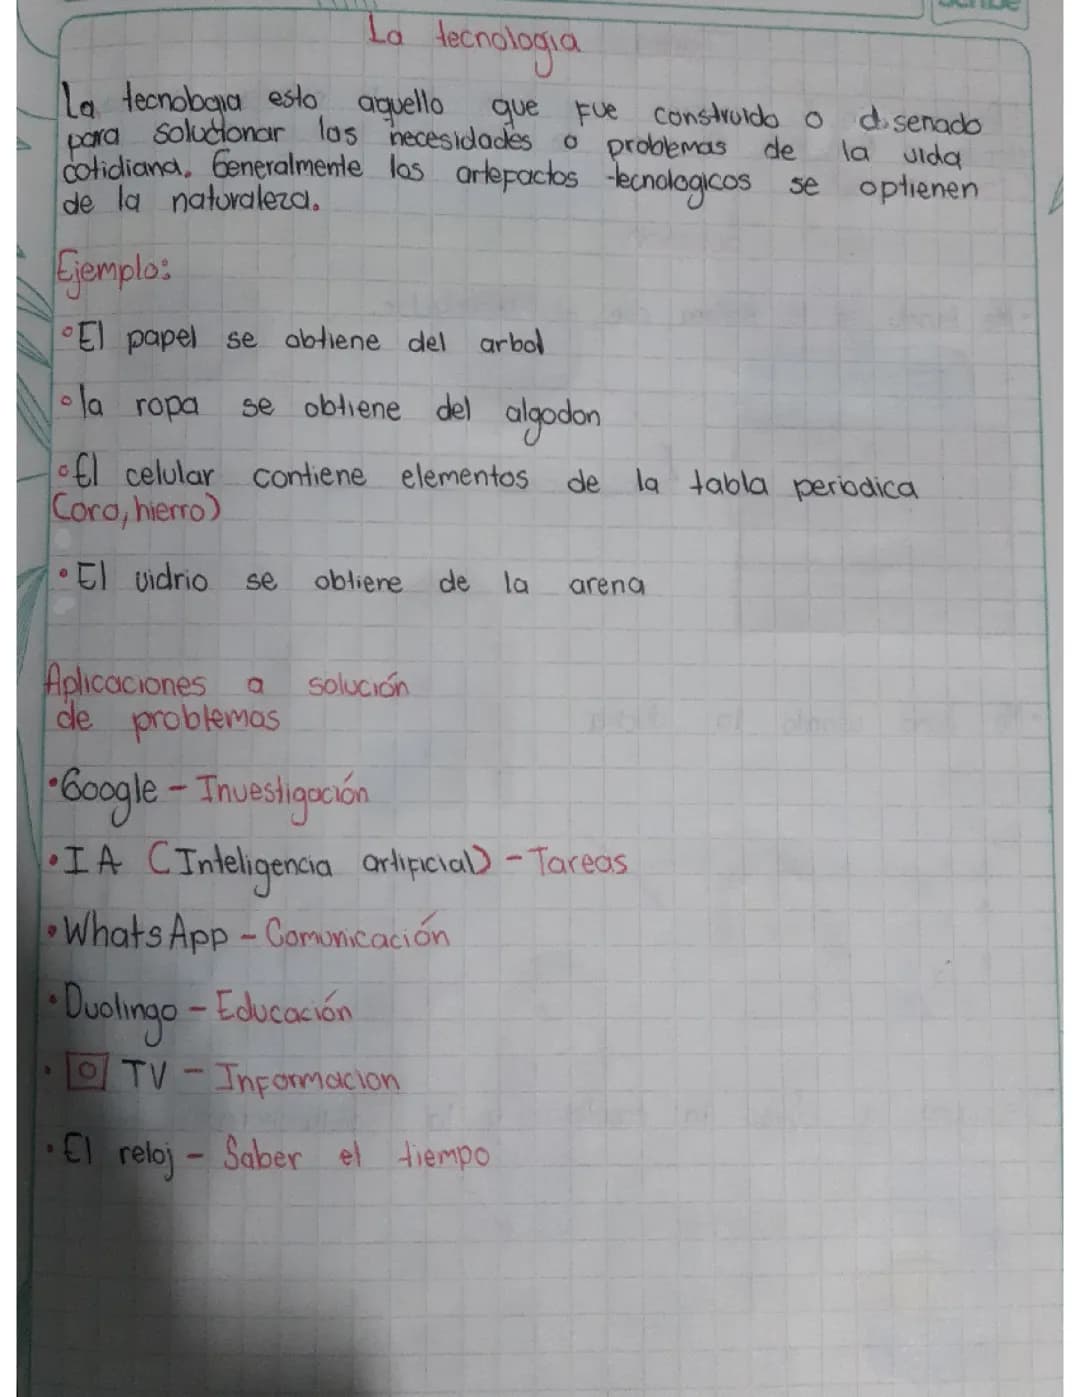 La tecnologia
La tecnologia esto aquello que fue construido o disenado
para soluctonar las necesidades o problemas de la vida
cotidiana. Generalmente los artepactos tecnologicos se optienen
de la naturaleza.
Ejemplo:
°El papel se obtiene del arbol
°la ropa se obtiene del algodon
°El celular contiene elementos de la tabla periodica
(oro, hierro)
•El vidrio se obtiene de la arena
Aplicaciones a solución
de problemas
•Google - Investigación
•IA (Inteligencia artificial) - Tareas
•WhatsApp - Comunicación
•Duolingo - Educación
• TV - Informacion
•El reloj - Saber el tiempo